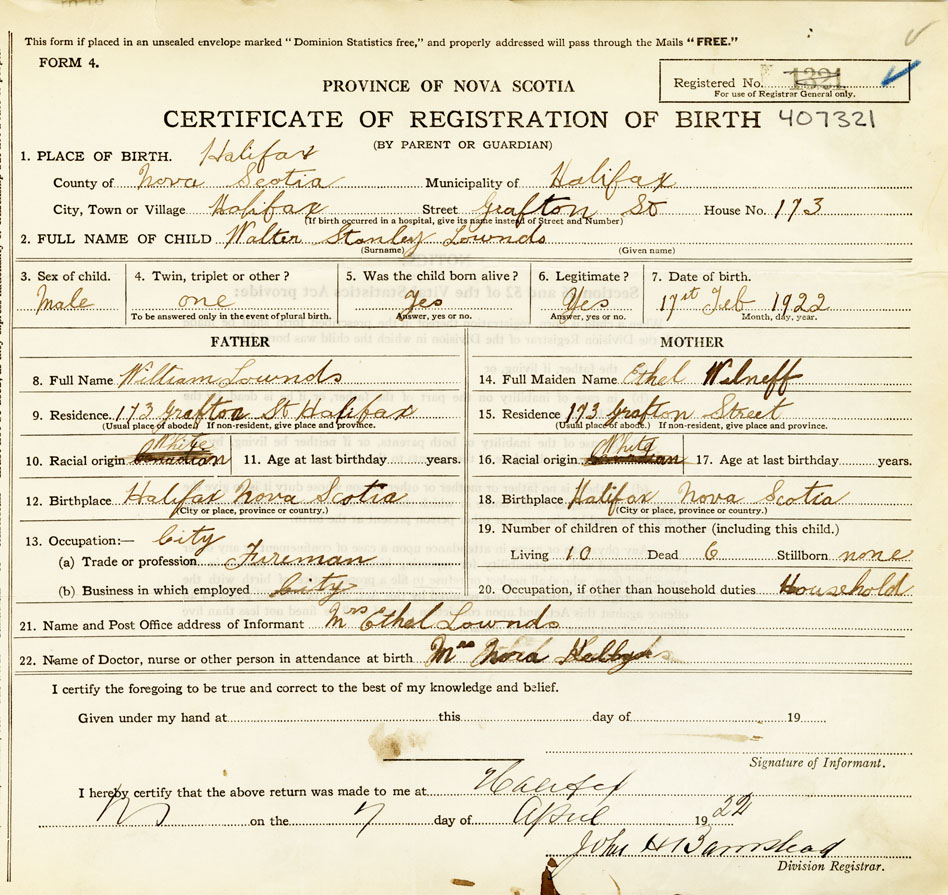 This form if placed in an unsealed envelope marked "Dominion Statistics free," and properly addressed will pass through the Mails "FREE."
FORM 4.
PROVINCE OF NOVA SCOTIA
Registered No. 1321
For use of Registrar General only.
CERTIFICATE OF REGISTRATION OF BIRTH 407321
(BY PARENT OR GUARDIAN)
1. PLACE OF BIRTH. Halifax
County of Nova Scotia Municipality of Halifax
City, Town or Village Halifax Street Grafton St House No. 173
(If birth occurred in a hospital, give its name instead of Street and Number)
2. FULL NAME OF CHILD Walter Stanley Lownds
(Surname) (Given name)
3. Sex of child. 4. Twin, triplet or other? 5. Was the child born alive? 6. Legitimate? 7. Date of birth.
Male one Yes Yes 17st Feb 1922
To be answered only in the event of plural birth. Answer, yes or no. Answer, yes or no. Month, day, year.
FATHER MOTHER
8. Full Name William Lownds 14. Full Maiden Name Ethel Welneff
9. Residence. 173 Grafton St Halifax 15. Residence 173 Grafton Street
(Usual place of abode.) If non-resident, give place and province. (Usual place of abode.) If non-resident, give place and province.
White White
10. Racial origin Canadian 11. Age at last birthday years. 16. Racial origin Canadian 17. Age at last birthday years.
12. Birthplace Halifax Nova Scotia 18. Birthplace Halifax Nova Scotia
(City or place, province or country.) (City or place, province or country.)
13. Occupation:— City 19. Number of children of this mother (including this child.)
(a) Trade or profession Fireman Living 10 Dead 6 Stillborn none
(b) Business in which employed City 20. Occupation, if other than household duties Household
21. Name and Post Office address of Informant Mrs Ethel Lownds
22. Name of Doctor, nurse or other person in attendance at birth Mrs Nora
I certify the foregoing to be true and correct to the best of my knowledge and belief.
Given under my hand at this day of 19
Signature of Informant.
I hereby certify that the above return was made to me at Halifax
NS on the 7 day of April 1922
John H Barnstead
Division Registrar.